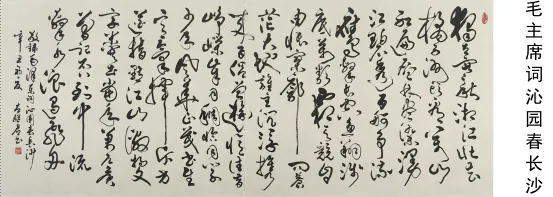 毛主席词沁园春长沙
独立寒秋湘江北去
橘子洲头看万山
红遍层林尽染漫
江碧透百舸争流
鹰击长空鱼翔浅
底万类霜天竞自
由怅寥廓问苍
茫大地谁主沉浮携
来百侣曾游忆往昔
峥嵘岁月稠恰同学
少年风华正茂书生
意气挥斥方
遒指点江山激扬文
字粪土当年万户侯
曾记否到中流
击水浪遏飞舟
敬录毛泽东词沁园春长沙
辛丑初夏